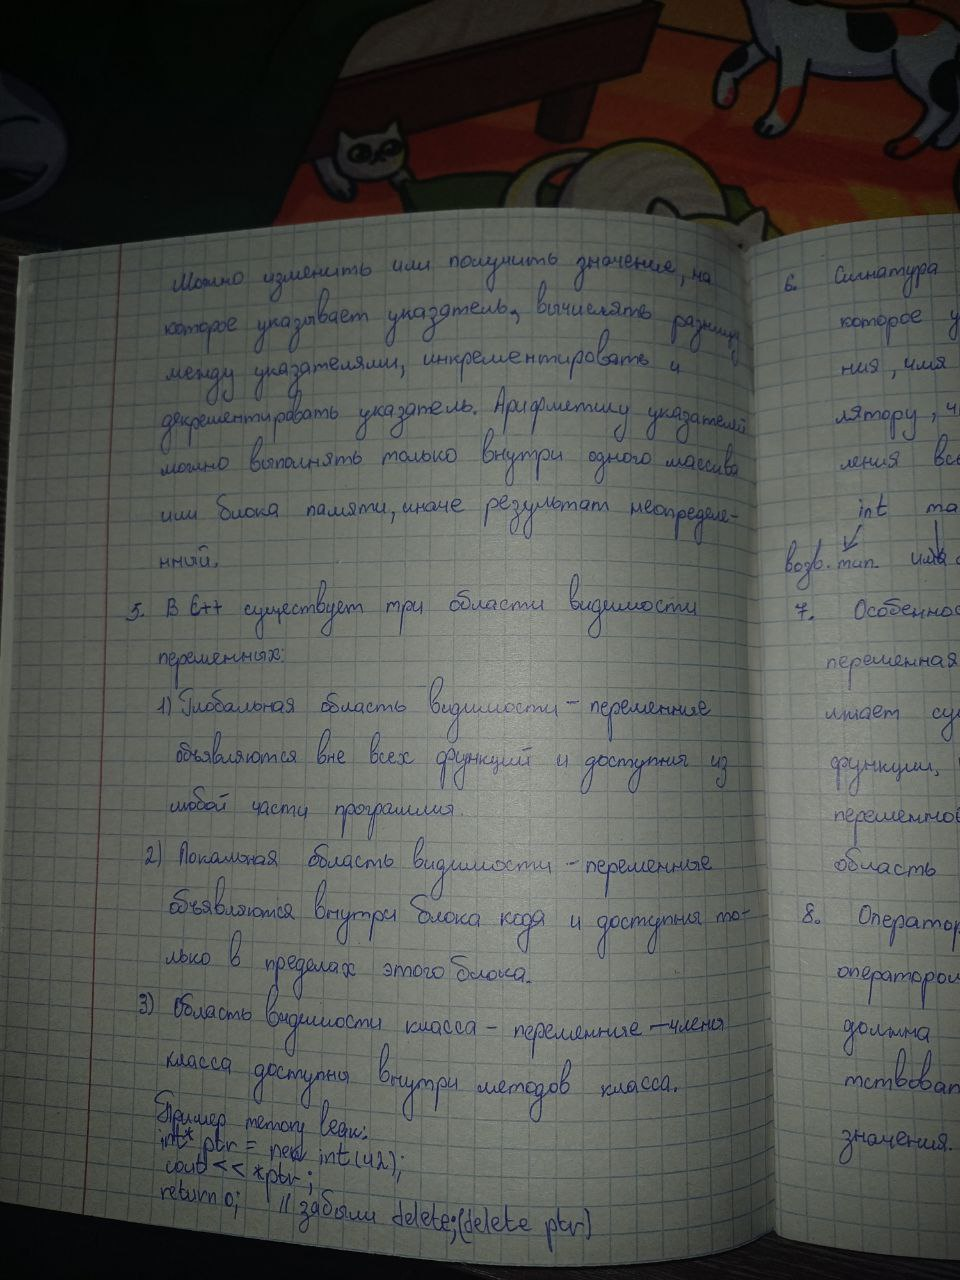 Можно изменить или получить значение, на
которое указывает указатель, вычислять разницу
между указателями, инкрементировать и
декрементировать указатель. Арифметику указателей
можно выполнять только внутри одного массива
или блока памяти, иначе результат неопределе-
нный.
5. В C++ существует три области видимости
переменных:
1) Глобальная область видимости - переменные
объявляются вне всех функций и доступны из
любой части программы.
2) Локальная область видимости - переменные
объявляются внутри блока кода и доступны то-
лько в пределах этого блока.
3) Область видимости класса - переменные - члены
класса доступны внутри методов класса.
Пример memory leak:
int* ptr = new int(42);
cout << *ptr;
return 0; // забыли delete;(delete ptr)
6. Сигнатура
которое у
ния, имя
лятору, ч
ления все
int ma
возв. тип. имя
7. Особеннос
переменная
лжает су
функции,
переменной
область
8. Оператор
оператором
должна
тствоват
значения.